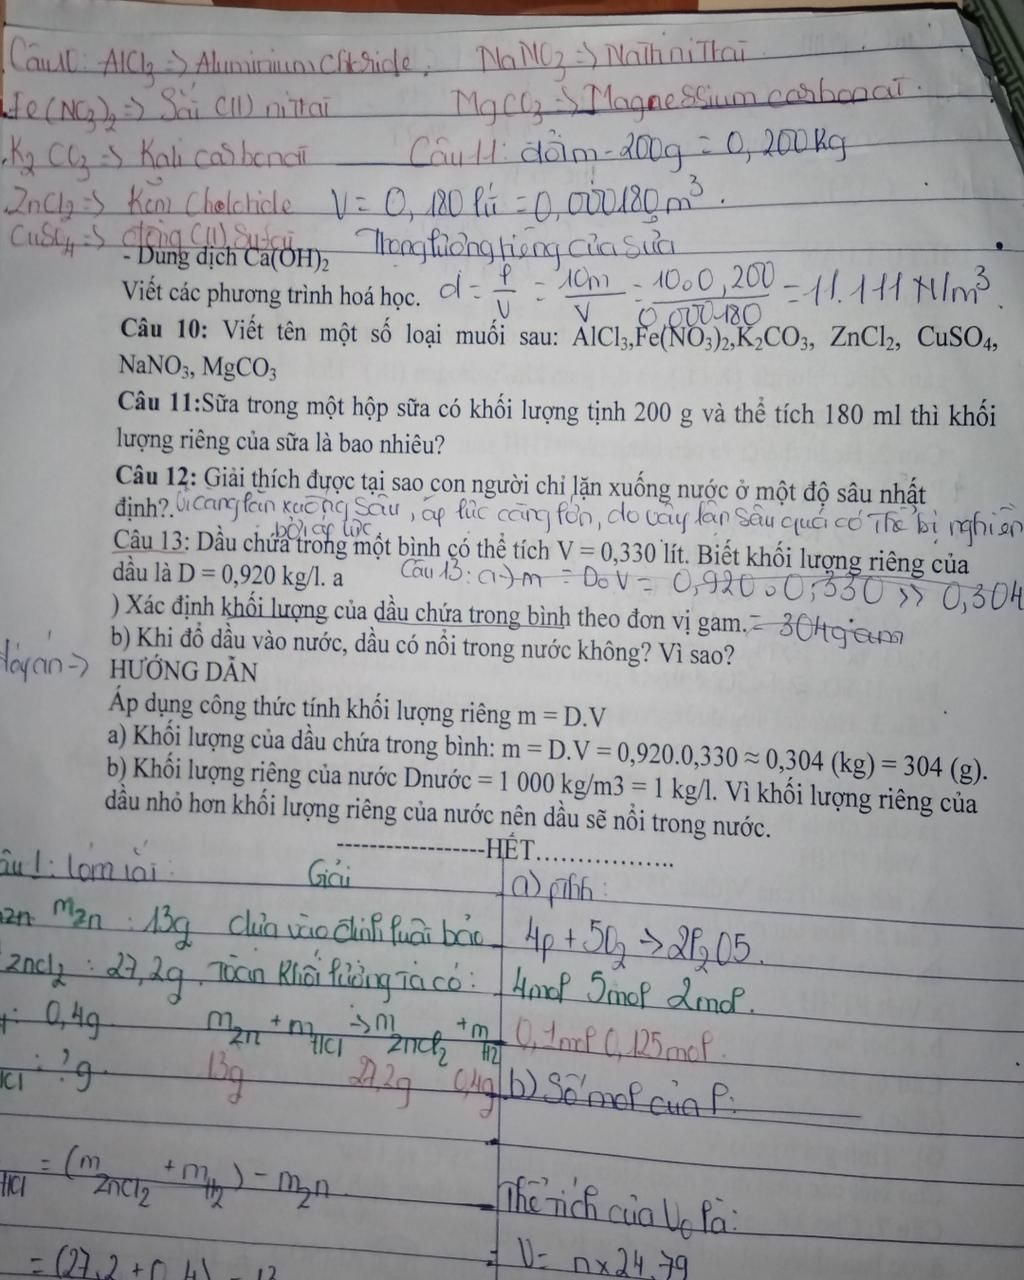 Câu 10: AlCl3 => Aluminium Chloride. NaNO3 => Nathnitrai
Fe(NO3)2 => Sắt (II) nitrai MgCO3 => Magnessium carbonat.
K2CO3 => Kali carbonat Câu 11: đổi m = 200g = 0,200kg
ZnCl2 => Kẽm Cholchide V = 0,180 lít = 0,000180 m3.
CuSO4 => đồng (II) Trọng lượng riêng của sữa
- Dung dịch Ca(OH)2
Viết các phương trình hoá học. d = P/V = 10m/V = 10.0,200/0,000180 = 11.111 N/m3.
Câu 10: Viết tên một số loại muối sau: AlCl3,Fe(NO3)2,K2CO3, ZnCl2, CuSO4,
NaNO3, MgCO3
Câu 11:Sữa trong một hộp sữa có khối lượng tịnh 200 g và thể tích 180 ml thì khối
lượng riêng của sữa là bao nhiêu?
Câu 12: Giải thích được tại sao con người chỉ lặn xuống nước ở một độ sâu nhất
định?. Vì càng lặn xuống sâu, áp lực càng lớn, do vậy lặn sâu quá có thể bị nghiền
bởi áp lực
Câu 13: Dầu chứa trong một bình có thể tích V = 0,330 lít. Biết khối lượng riêng của
dầu là D = 0,920 kg/l. a Câu 13: a) m = D.V = 0,920.0,330 >> 0,304
) Xác định khối lượng của dầu chứa trong bình theo đơn vị gam. = 304 giam
b) Khi đổ dầu vào nước, dầu có nổi trong nước không? Vì sao?
đáp án -> HƯỚNG DẪN
Áp dụng công thức tính khối lượng riêng m = D.V
a) Khối lượng của dầu chứa trong bình: m = D.V = 0,920.0,330 ≈ 0,304 (kg) = 304 (g).
b) Khối lượng riêng của nước Dnước = 1 000 kg/m3 = 1 kg/l. Vì khối lượng riêng của
dầu nhỏ hơn khối lượng riêng của nước nên dầu sẽ nổi trong nước.
------------------HẾT……………..
âu 1: Tóm tắt: Giải
mZn : 13g dựa vào định luật bảo
ZnCl2 : 27,2g. Toàn khối lượng ta có:
: 0,4g mZn + mHCl -> mZnCl2 + mH2
HCl : ? g 13g 27,2g 0,4g
HCl = (mZnCl2 + mH2) - mZn
= (27,2 + 0,4) - 13
a) pthh:
4P + 5O2 -> 2P2O5.
4mol 5mol 2mol.
0,1mol 0,125mol.
b) Số mol của P:
Thể tích của V0 là:
= V = n x 24,79